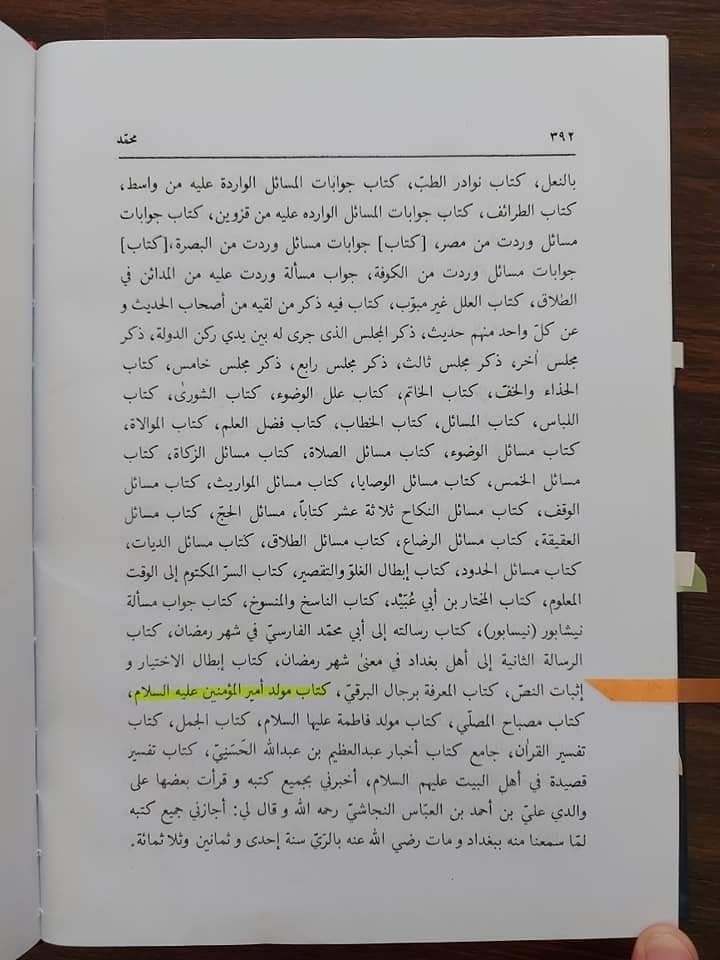 ٣٩٢ محمّد
بالنعل، كتاب نوادر الطبّ، كتاب جوابات المسائل الواردة عليه من واسط،
كتاب الطرائف، كتاب جوابات المسائل الوارده عليه من قزوين، كتاب جوابات
مسائل وردت من مصر، [كتاب] جوابات مسائل وردت من البصرة،[كتاب]
جوابات مسائل وردت من الكوفة، جواب مسألة وردت عليه من المدائن في
الطلاق، كتاب العلل غير مبوّب، كتاب فيه ذكر من لقيه من أصحاب الحديث و
عن كلّ واحد منهم حديث، ذكر المجلس الذى جرى له بين يدي ركن الدولة، ذكر
مجلس اٰخر، ذكر مجلس ثالث، ذكر مجلس رابع، ذكر مجلس خامس، كتاب
الحذاء والخفّ، كتاب الخاتم، كتاب علل الوضوء، كتاب الشورىٰ، كتاب
اللباس، كتاب المسائل، كتاب الخطاب، كتاب فضل العلم، كتاب الموالاة،
كتاب مسائل الوضوء، كتاب مسائل الصلاة، كتاب مسائل الزكاة، كتاب
مسائل الخمس، كتاب مسائل الوصايا، كتاب مسائل المواريث، كتاب مسائل
الوقف، كتاب مسائل النكاح ثلاثة عشر كتاباً، مسائل الحجّ، كتاب مسائل
العقيقة، كتاب مسائل الرضاع، كتاب مسائل الطلاق، كتاب مسائل الديات،
كتاب مسائل الحدود، كتاب إبطال الغلوّ والتقصير، كتاب السرّ المكتوم إلى الوقت
المعلوم، كتاب المختار بن أبي عُبَيْد، كتاب الناسخ والمنسوخ، كتاب جواب مسألة
نيشابور (نيسابور)، كتاب رسالته إلى أبي محمّد الفارسيّ في شهر رمضان، كتاب
الرسالة الثانية إلى أهل بغداد في معنىٰ شهر رمضان، كتاب إبطال الاختيار و
إثبات النصّ، كتاب المعرفة برجال البرقيّ، كتاب مولد أمير المؤمنين عليه السلام،
كتاب مصباح المصلّي، كتاب مولد فاطمة عليها السلام، كتاب الجمل، كتاب
تفسير القراٰن، جامع كتاب أخبار عبدالعظيم بن عبدالله الحَسَنِيّ، كتاب تفسير
قصيدة في أهل البيت عليهم السلام، أخبرني بجميع كتبه و قرأت بعضها على
والدي عليّ بن أحمد بن العبّاس النجاشيّ رحمه الله و قال لي: أجازني جميع كتبه
لمّا سمعنا منه ببغداد و مات رضي الله عنه بالرّيّ سنة إحدى و ثمانين وثلاثمائة.